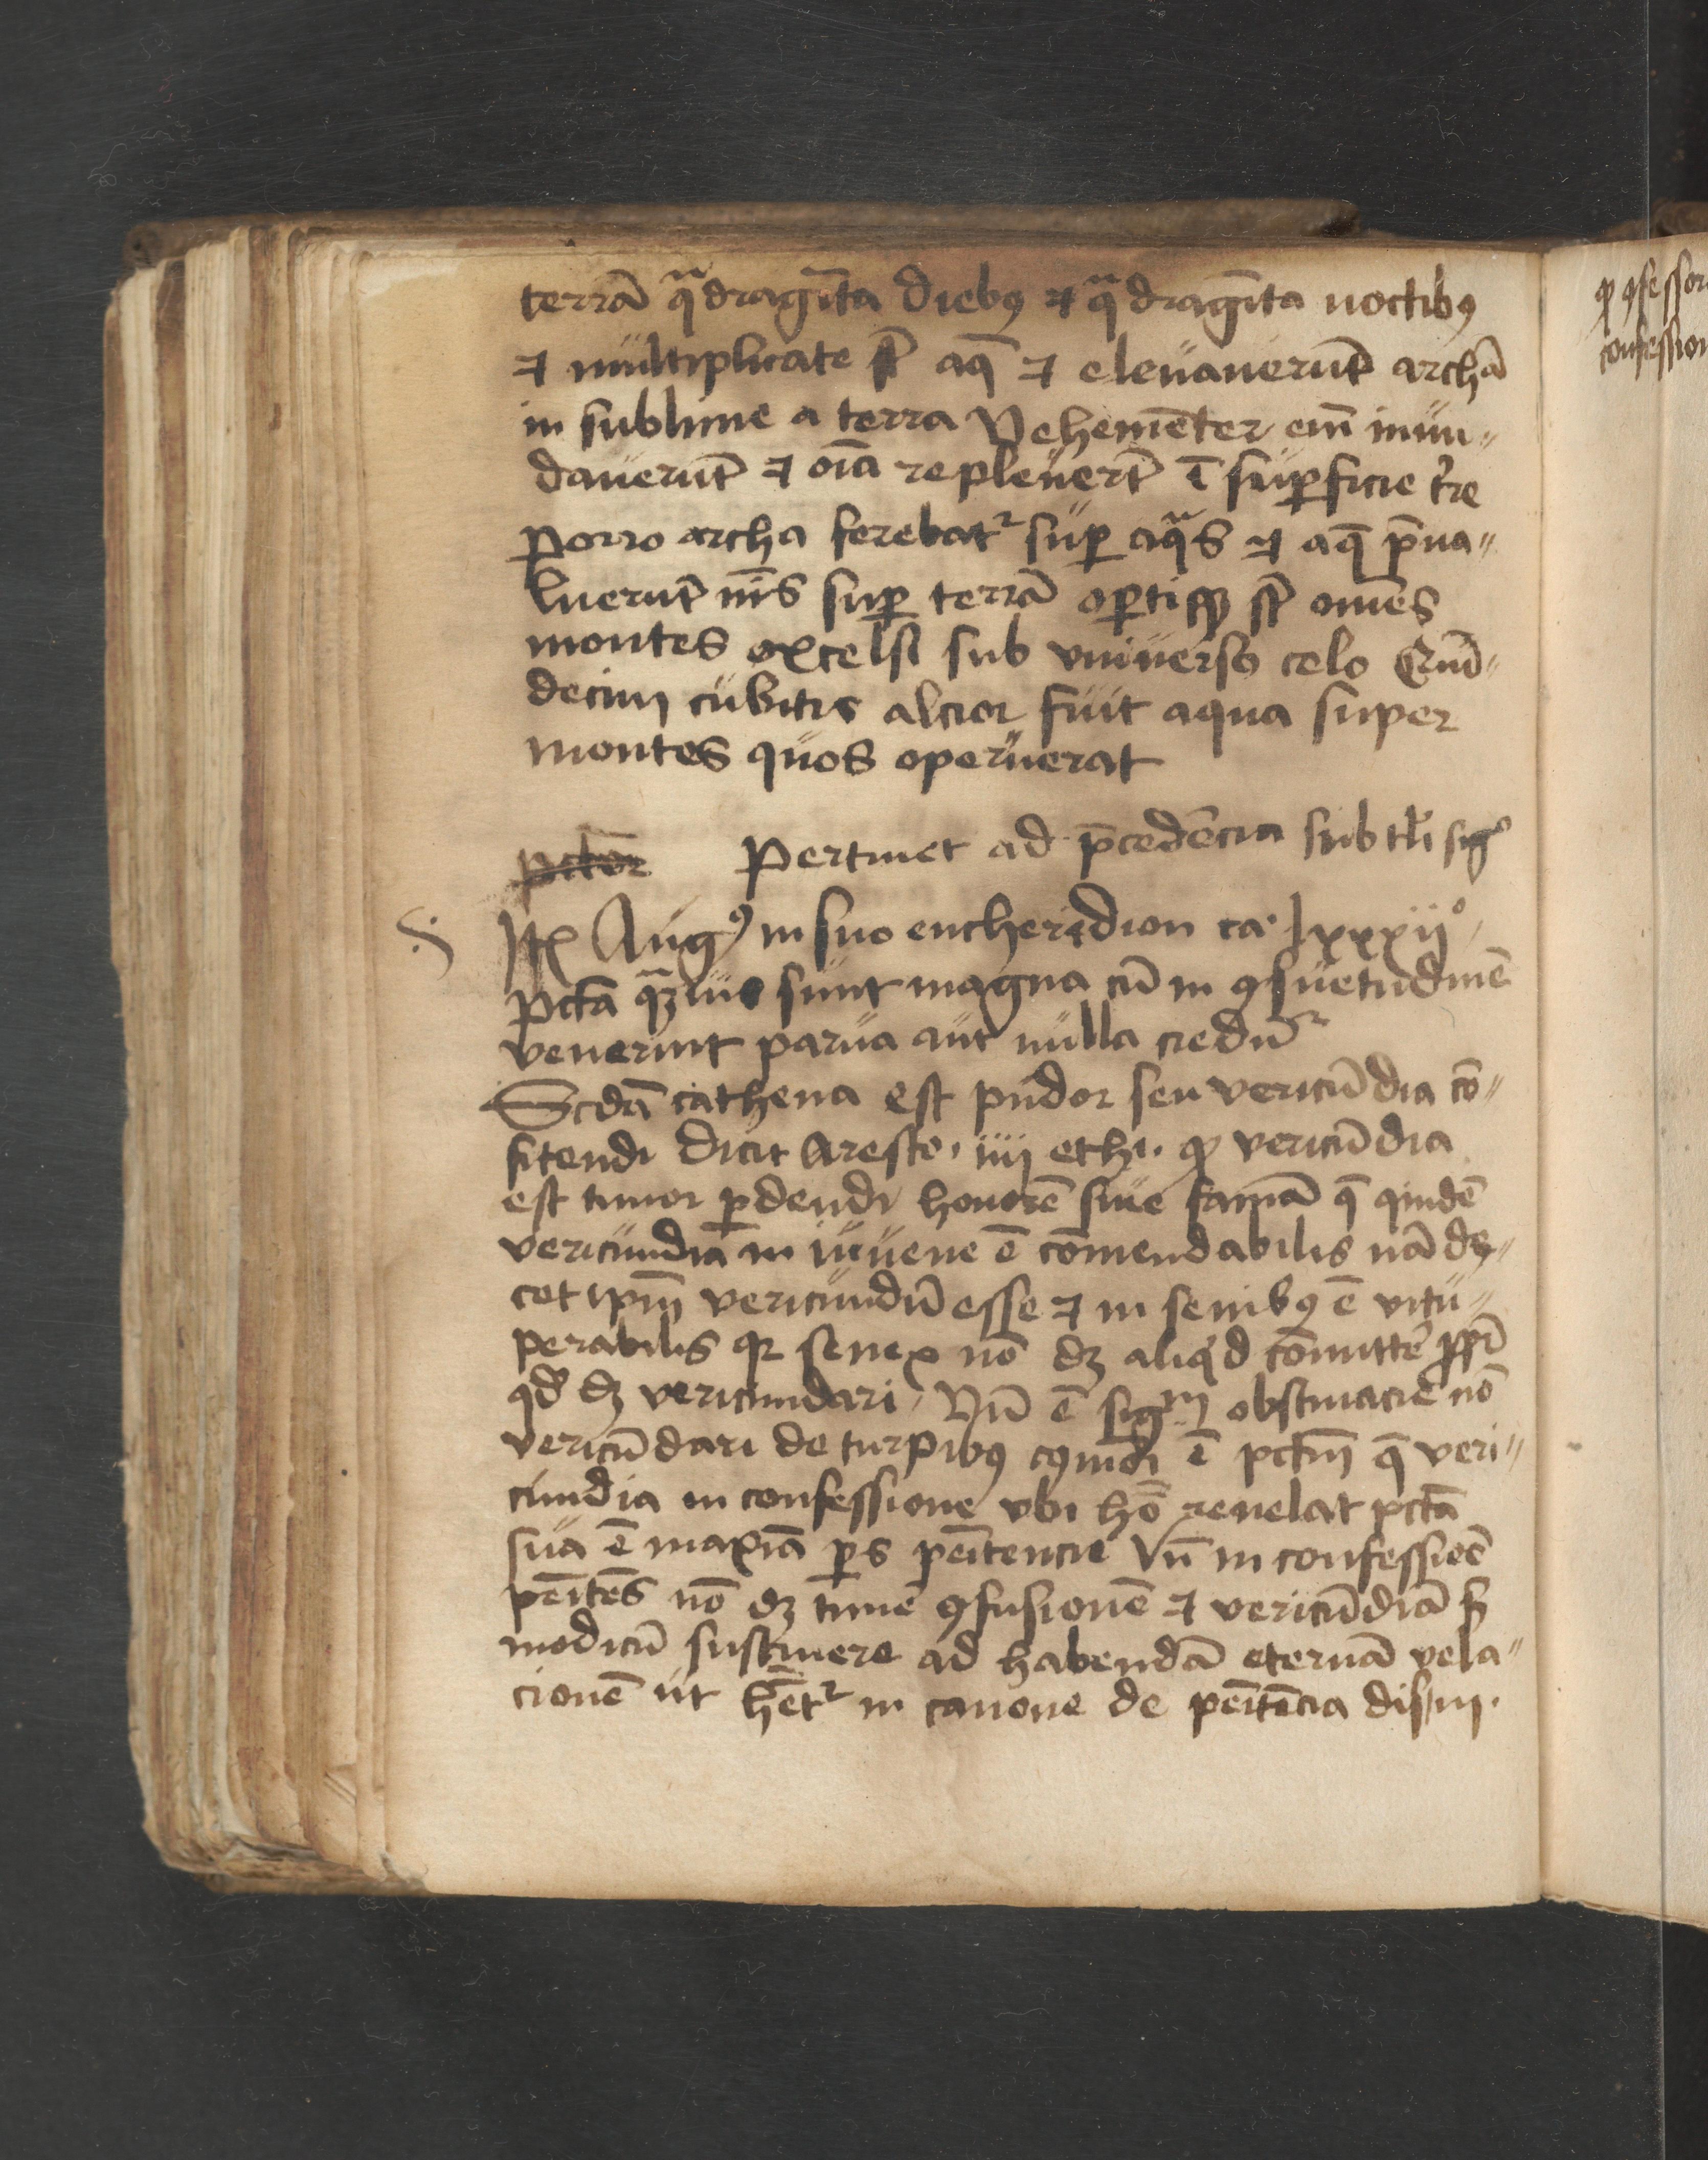 terrā qᵃdragīta diebꝯ ⁊ qᵃdragīta noctibꝯ
⁊ multiplicate st̄ aq̄ ⁊ eleuauerūt archā
in sublime a terra Vehemēter em̄ inun〃
dauerūt ⁊ oīa repleuert̄ ī suꝑficie tr̄e
Porro archa ferebatᷣ suꝑ aqᵃs ⁊ aq̄ p̄ua〃
luerūt nīs suꝑ terrā oꝑtiqꝫ st̄ om̄es
montes excelsi sub vniuerso celo Quī〃
decim cubitis alcior fuit aqua super
montes quos operuerat
pctōr Pertinet ad p̄cedēcia sub tⁱli sigᵒ
Itē Augꝯ in suo encheridion ca· lxxxijᵒ
Pctā qᵃꝫuis sunt magna cū in ꝯsuetudinē
venerint parua aut nulla credūᷣ
Scdā cathena est pudor seu vericūdia cō〃
fitendi Dicit Aresto· iiij ethi· ꝙ vericūdia
est timor ꝑdendi honorē siue famā q̄ quidē
vericundia in iuuene ē cōmendabilis nā de〃
cet ipm̄ vericundū esse ⁊ in senibꝯ ē vitu〃
perabilis qꝛ senex nō dꝫ aliqⁱd cōmittē̄ ꝓpt̄
qd̄ dꝫ vericundari Vn̄ ē sigᵐ obstinacie nō
vericūdari de turpibꝯ cꝯmōi ē pctm̄ q̄ veri〃
cundia in confessione vbi hō reuelat pctā
sua ē maxīa ꝑs pēitencie Vn̄ in confessiōē
pēitēs nō dꝫ timē̄ ꝯfusionē ⁊ vericūdiā sꝫ
modicū sustinere ad habendā eternā vela〃
cionē ut hētᷣ in canone de pēitēcia dis
ꝙ ꝯfessor
confession